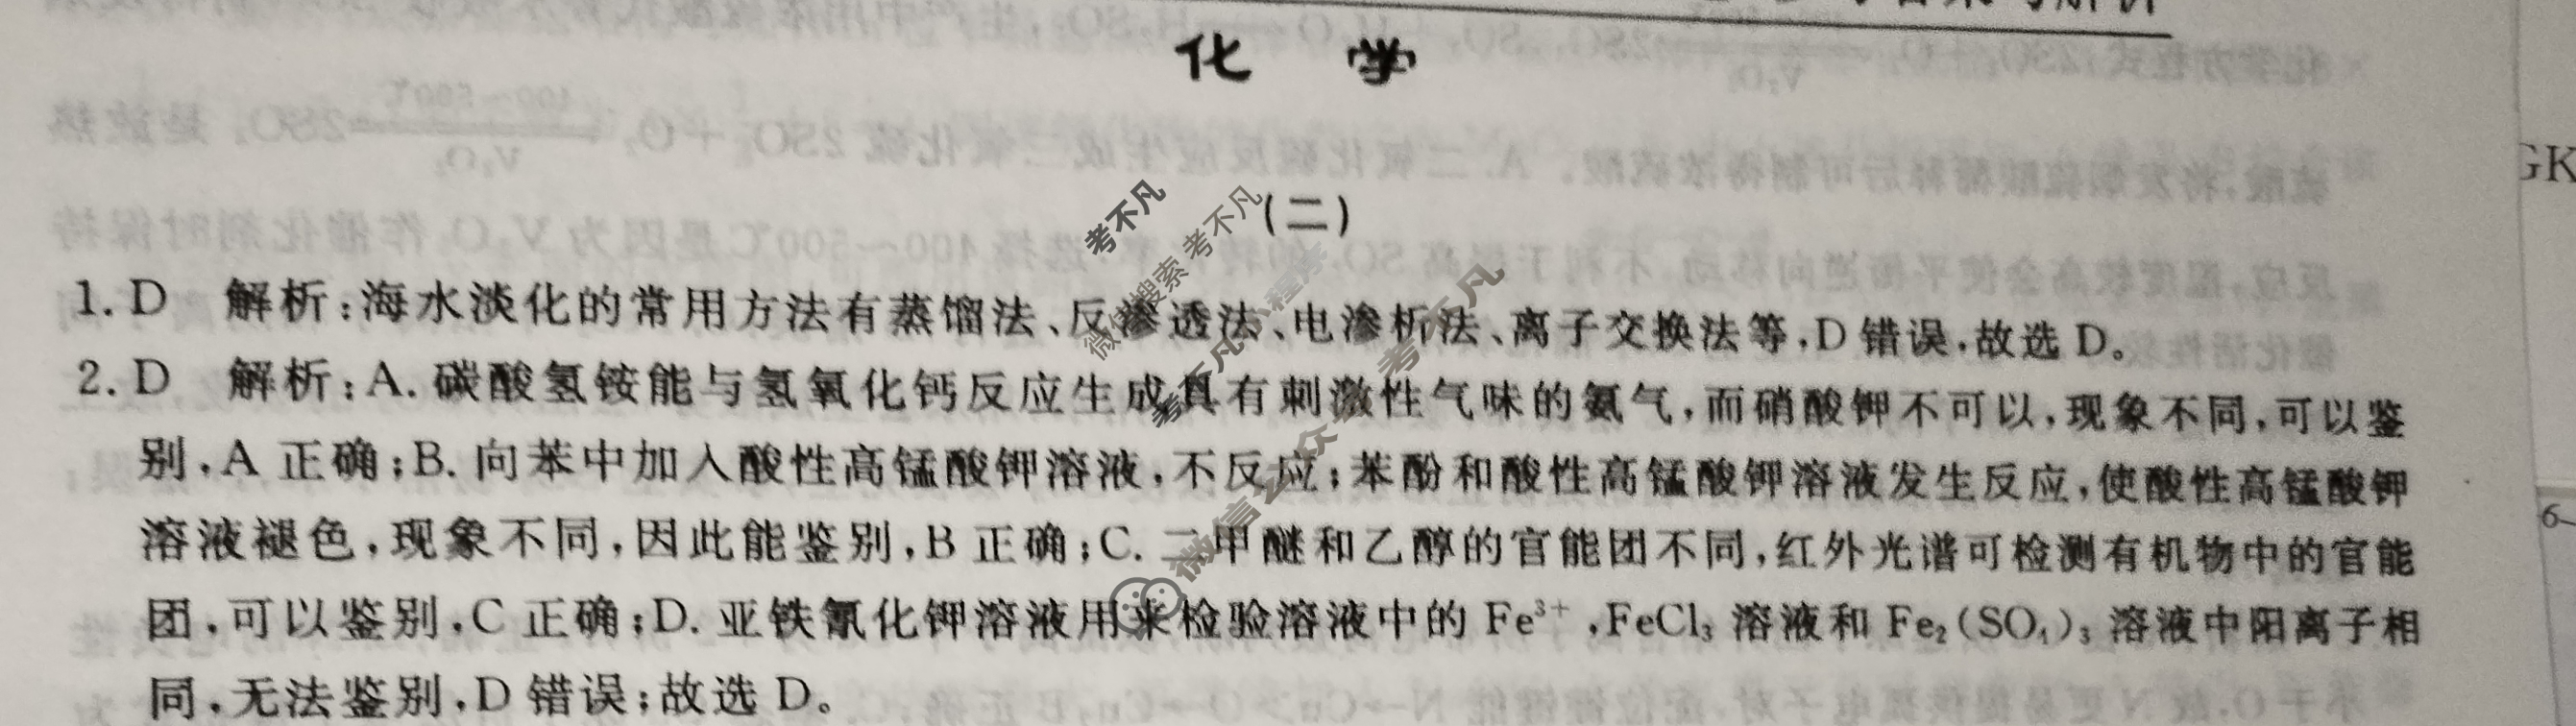 化 学
(二)
1. D 解析:海水淡化的常用方法有蒸馏法、反渗透法、电渗析法、离子交换法等,D错误,故选D。
2. D 解析:A. 碳酸氢铵能与氢氧化钙反应生成具有刺激性气味的氨气,而硝酸钾不可以,现象不同,可以鉴
别,A 正确;B. 向苯中加入酸性高锰酸钾溶液,不反应;苯酚和酸性高锰酸钾溶液发生反应,使酸性高锰酸钾
溶液褪色,现象不同,因此能鉴别,B 正确;C. 二甲醚和乙醇的官能团不同,红外光谱可检测有机物中的官能
团,可以鉴别,C 正确;D. 亚铁氰化钾溶液用来检验溶液中的 Fe³⁺,FeCl₃ 溶液和 Fe₂(SO₄)₃ 溶液中阳离子相
同,无法鉴别,D 错误;故选 D。
考不凡
微信搜索 考不凡
考不凡 小程序
微信公众 考不凡
GK
6-